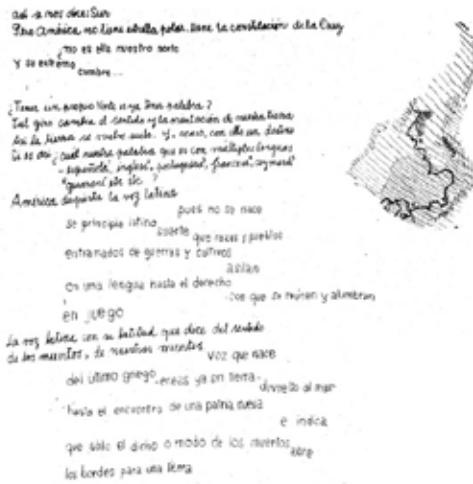 así se nos dice: Sur
Pero América no tiene estrella polar, tiene la constelación de la Cruz
¿no es ella nuestro norte
Y su extremo
cumbre...
¿Tener un propio Norte o ya tener palabra?
Tal giro cambia el sentido y la de nuestra tierra
la tierra se vuelve suelo. Y, acaso, con ello un destino
cuál nuestra palabra que es con múltiples lenguas
- española, inglesa, portuguesa, francesa, aymará
guaraní etc etc. ?
América despierta la voz latina
pues no se nace
se principia latino
suerte
que razas y pueblos
entramados de guerras y cultivos
asilan
en una lengua hasta el derecho
con que se reúnan y alumbran
en juego
La voz latina con su latitud que dice del sentido
de los muertos, de nuestros muertos
voz que nace
del último griego -eneas ya en tierra-
devuelto al mar
hasta el encuentro de una palma nueva
e indica
que sólo el dicho o modo de los muertos
abre
los bordes para una tierra